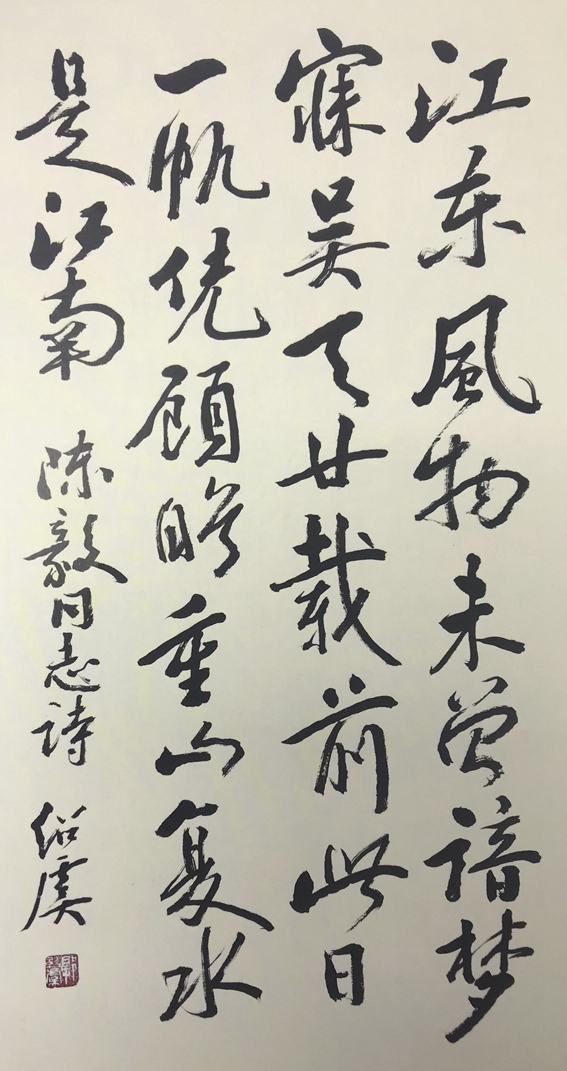 江东風物未曾谙梦
寐吴天廿载前此日
一帆凭顾盼重山复水
是江南 陈毅同志诗 绍虞